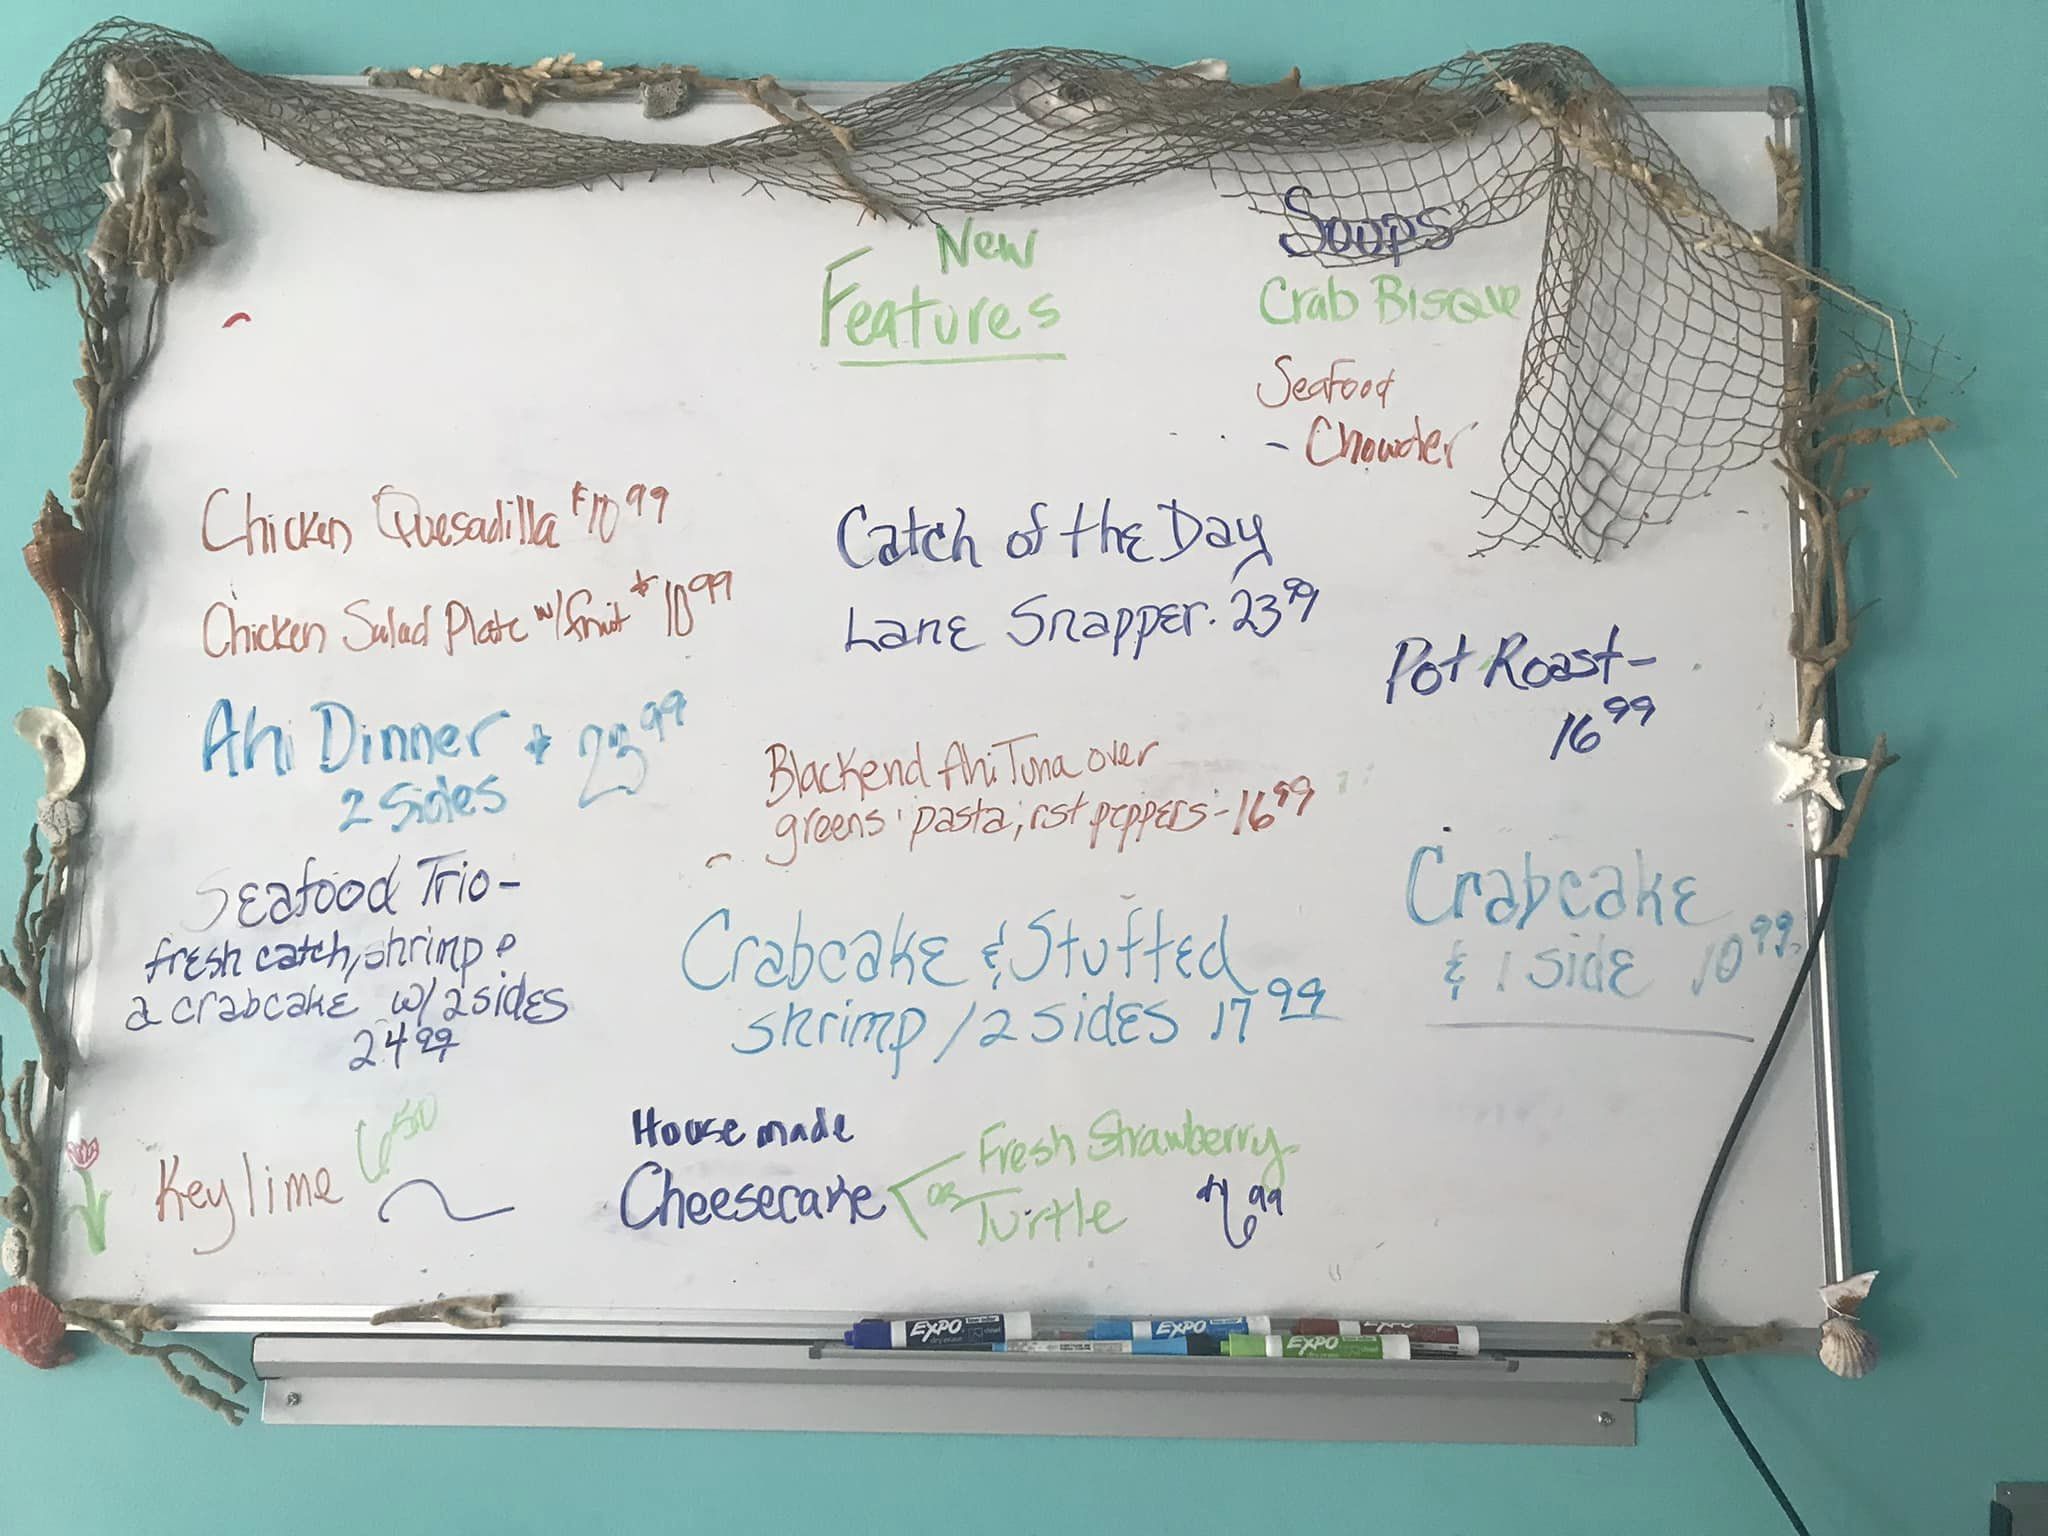 New
Features
Soups
Crab Bisque
Seafood
- Chowder
Chicken Quesadilla $10 99
Chicken Salad Plate w/fruit $10 99
Ahi Dinner $ 23 99
2 Sides
Seafood Trio -
fresh catch, shrimp &
a crabcake w/ 2 sides
24 99
Catch of the Day
Lane Snapper. 23 99
Blackend Ahi Tuna over
greens, pasta, rst peppers - 16 99
Crabcake & Stuffed
shrimp / 2 sides 17 99
Pot Roast -
16 99
Crabcake
& 1 side 10 99
Key lime 6 50
House made
Cheesecake
Fresh Strawberry
or
Turtle $6 99
EXPO
EXPO
EXPO